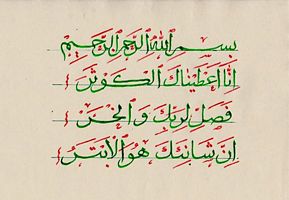 بسم الله الرحمن الرحيم
انا اعطيناك الكوثر
فصل لربك والنحر
ان شانئك هو الابتر